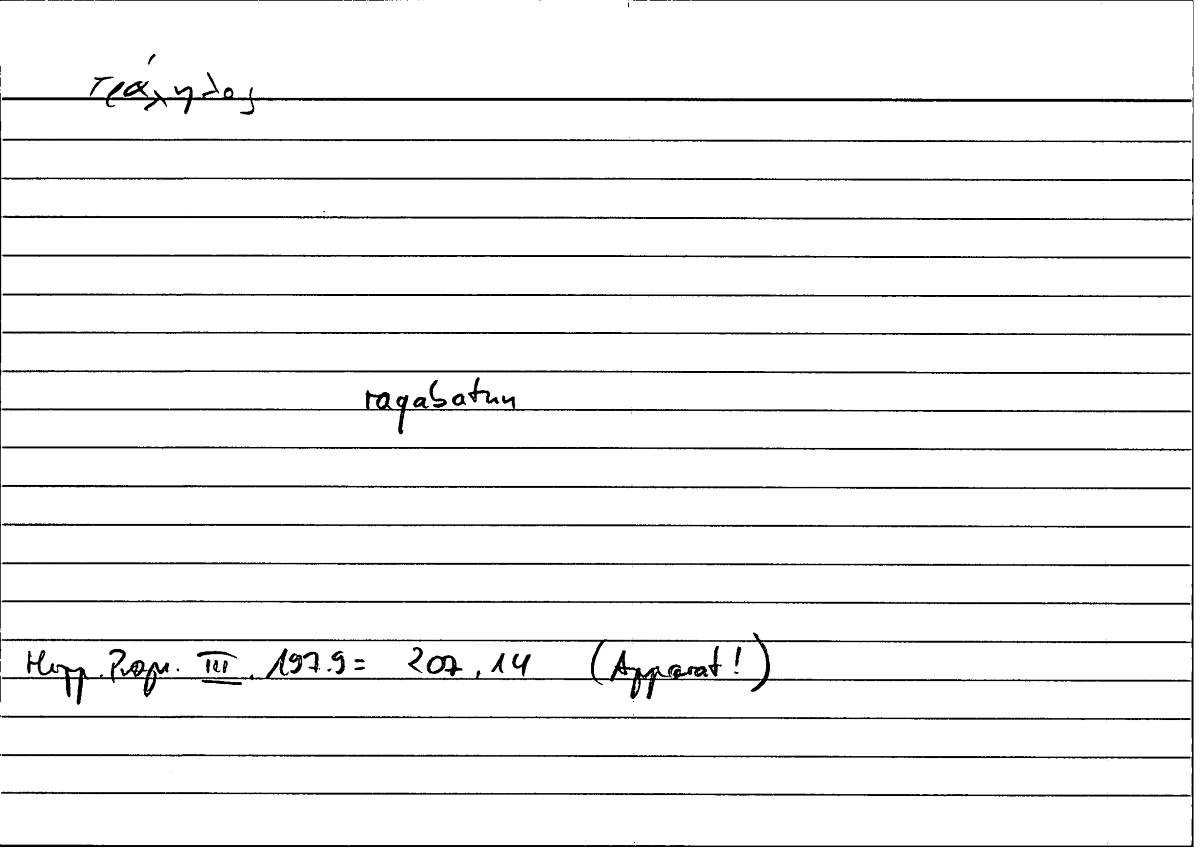 τράχηλος
raqabatun
Hipp. Progn. III. 197.9 = 207,14 (Apparat!)